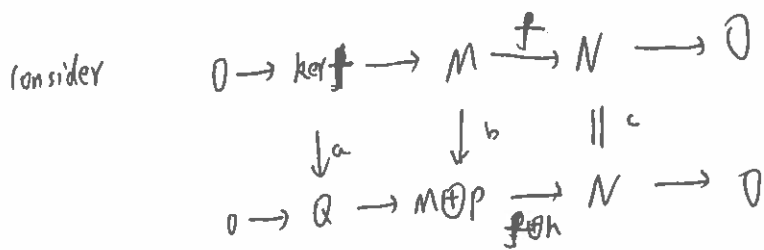 consider 0 → ker f → M →f N → 0
↓ a ↓ b || c
0 → Q → M⊕P →f⊕h N → 0